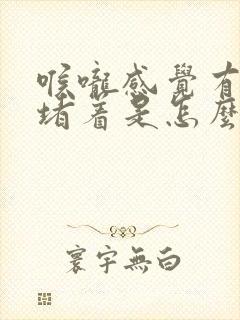 喉嚨感覺有
堵着是怎麼
寰宇無白